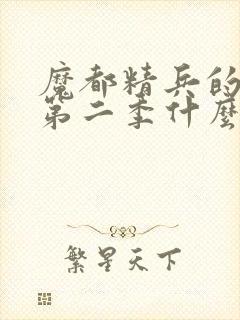 魔都精兵的
第二季什麼
繁星天下